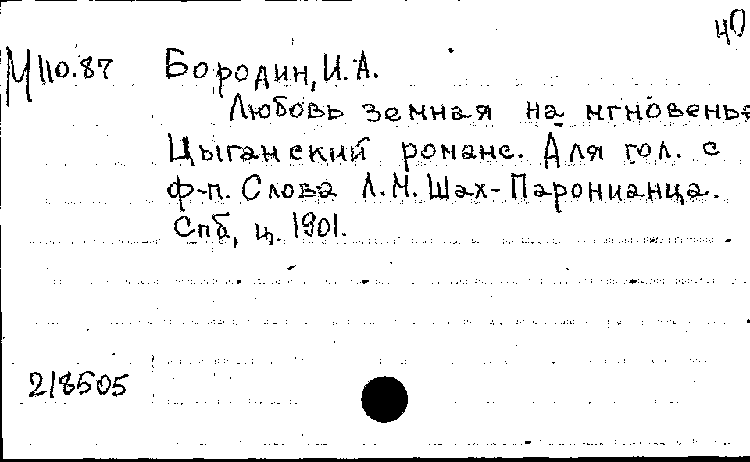 40
М 110.87 Бородин, И.А.
Любовь земная на мгновенье
Цыганский романс. Для гол. с
ф-п. Слова Л.М. Шах-Паронианца.
Спб, ц. 1901.
218505